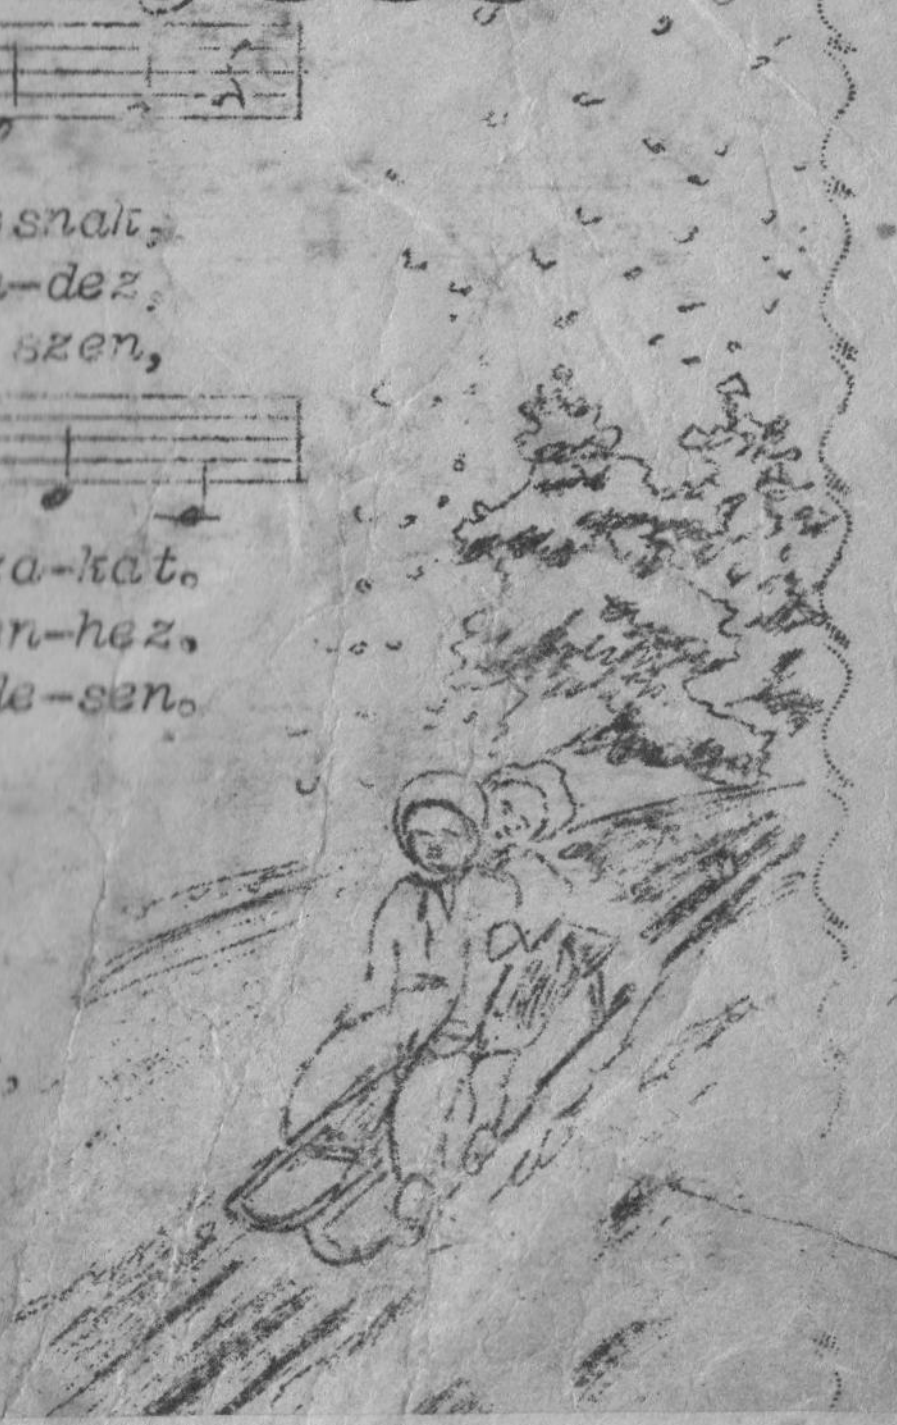 snak,
-dez,
szen,
a-kat.
n-hez.
le-sen.